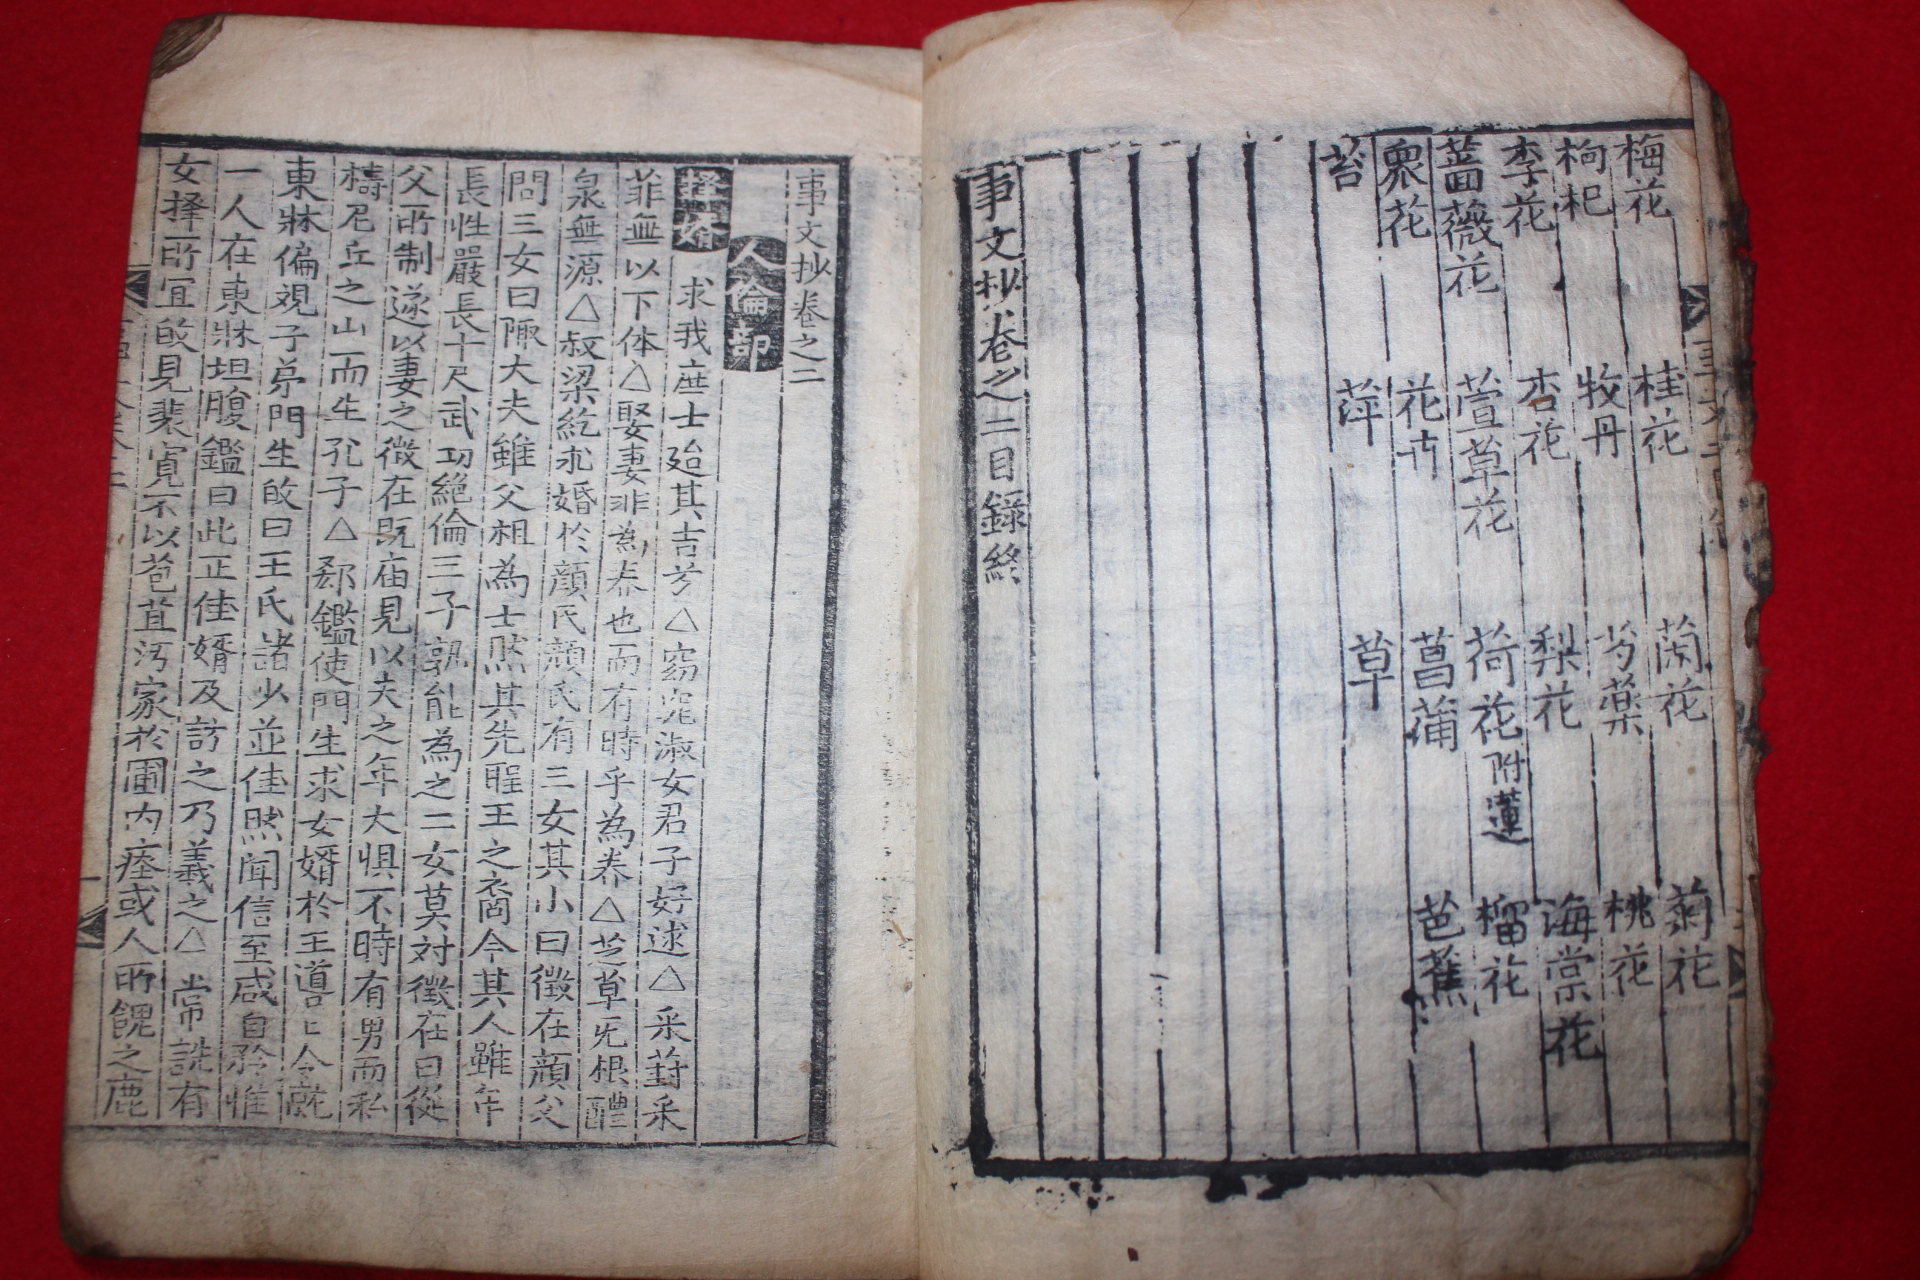 梅花 桂花 蘭花 菊花
枸杞 牧丹 芍藥 桃花
李花 杏花 梨花 海棠花
薔薇花 萱草花 荷花附蓮 榴花
衆花 花卉 菖蒲 芭蕉
苔 萍 草
事文抄卷之二目録終
事文抄卷之二
人倫部
擇婚 求我庶士迨其吉兮△窈窕淑女君子好逑△采葑采
菲無以下体△娶妻非為养也而有時乎為养△芝草旡根醴
泉無源△叔梁紇求婚於顔氏顔氏有三女其小曰徵在顔父
問三女曰陬大夫雖父祖為士然其先聖王之裔今其人雖年
長性嚴長十尺武功絶倫三子孰能為之二女莫对徵在曰從
父所制遂以妻之微在既庙見以夫之年大惧不時有男而私
禱尼丘之山而生孔子△郄鑑使門生求女婿於王導上令就
東牀偏視子弟門生皈曰王氏諸少並佳然闻信至咸自矜惟
一人在東牀坦腹鑑曰此正佳婿及訪之乃義之△常詵有
女择所宜皈見裴寛不以苞苴汚家於圃内瘗或人所餽之鹿